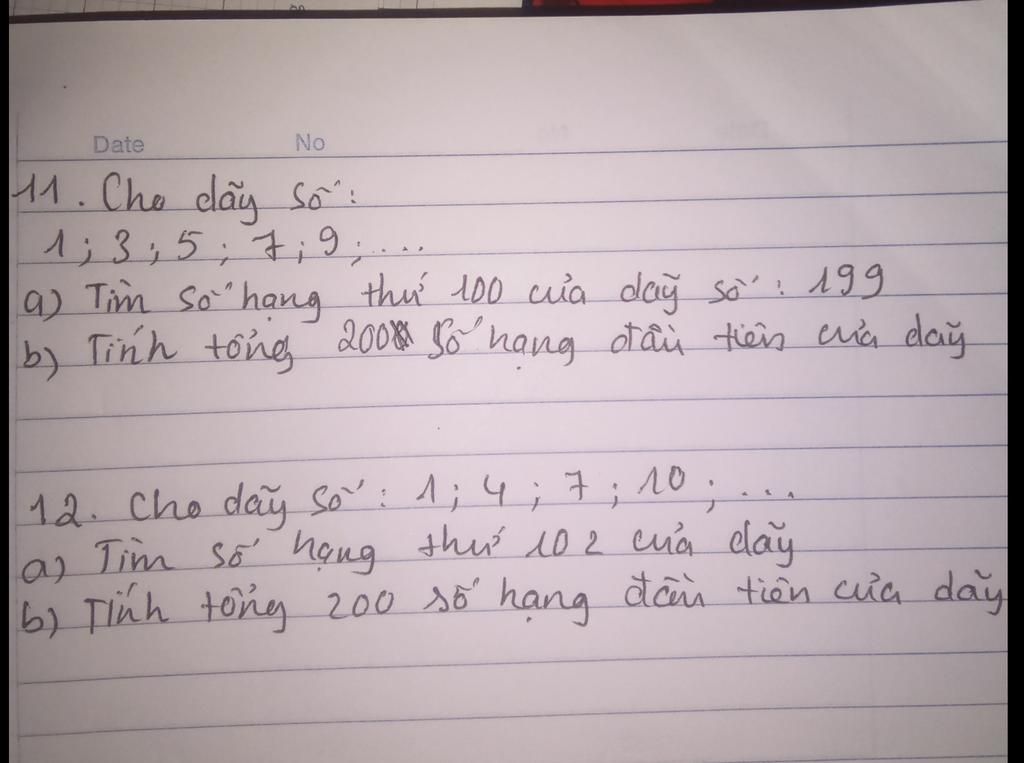 Date No
11. Cho dãy số:
1; 3; 5; 7; 9; ...
a) Tìm số hạng thứ 100 của dãy số: 199
b) Tính tổng 200 số hạng đầu tiên của dãy
12. Cho dãy số: 1; 4; 7; 10; ...
a) Tìm số hạng thứ 102 của dãy
b) Tính tổng 200 số hạng đầu tiên của dãy